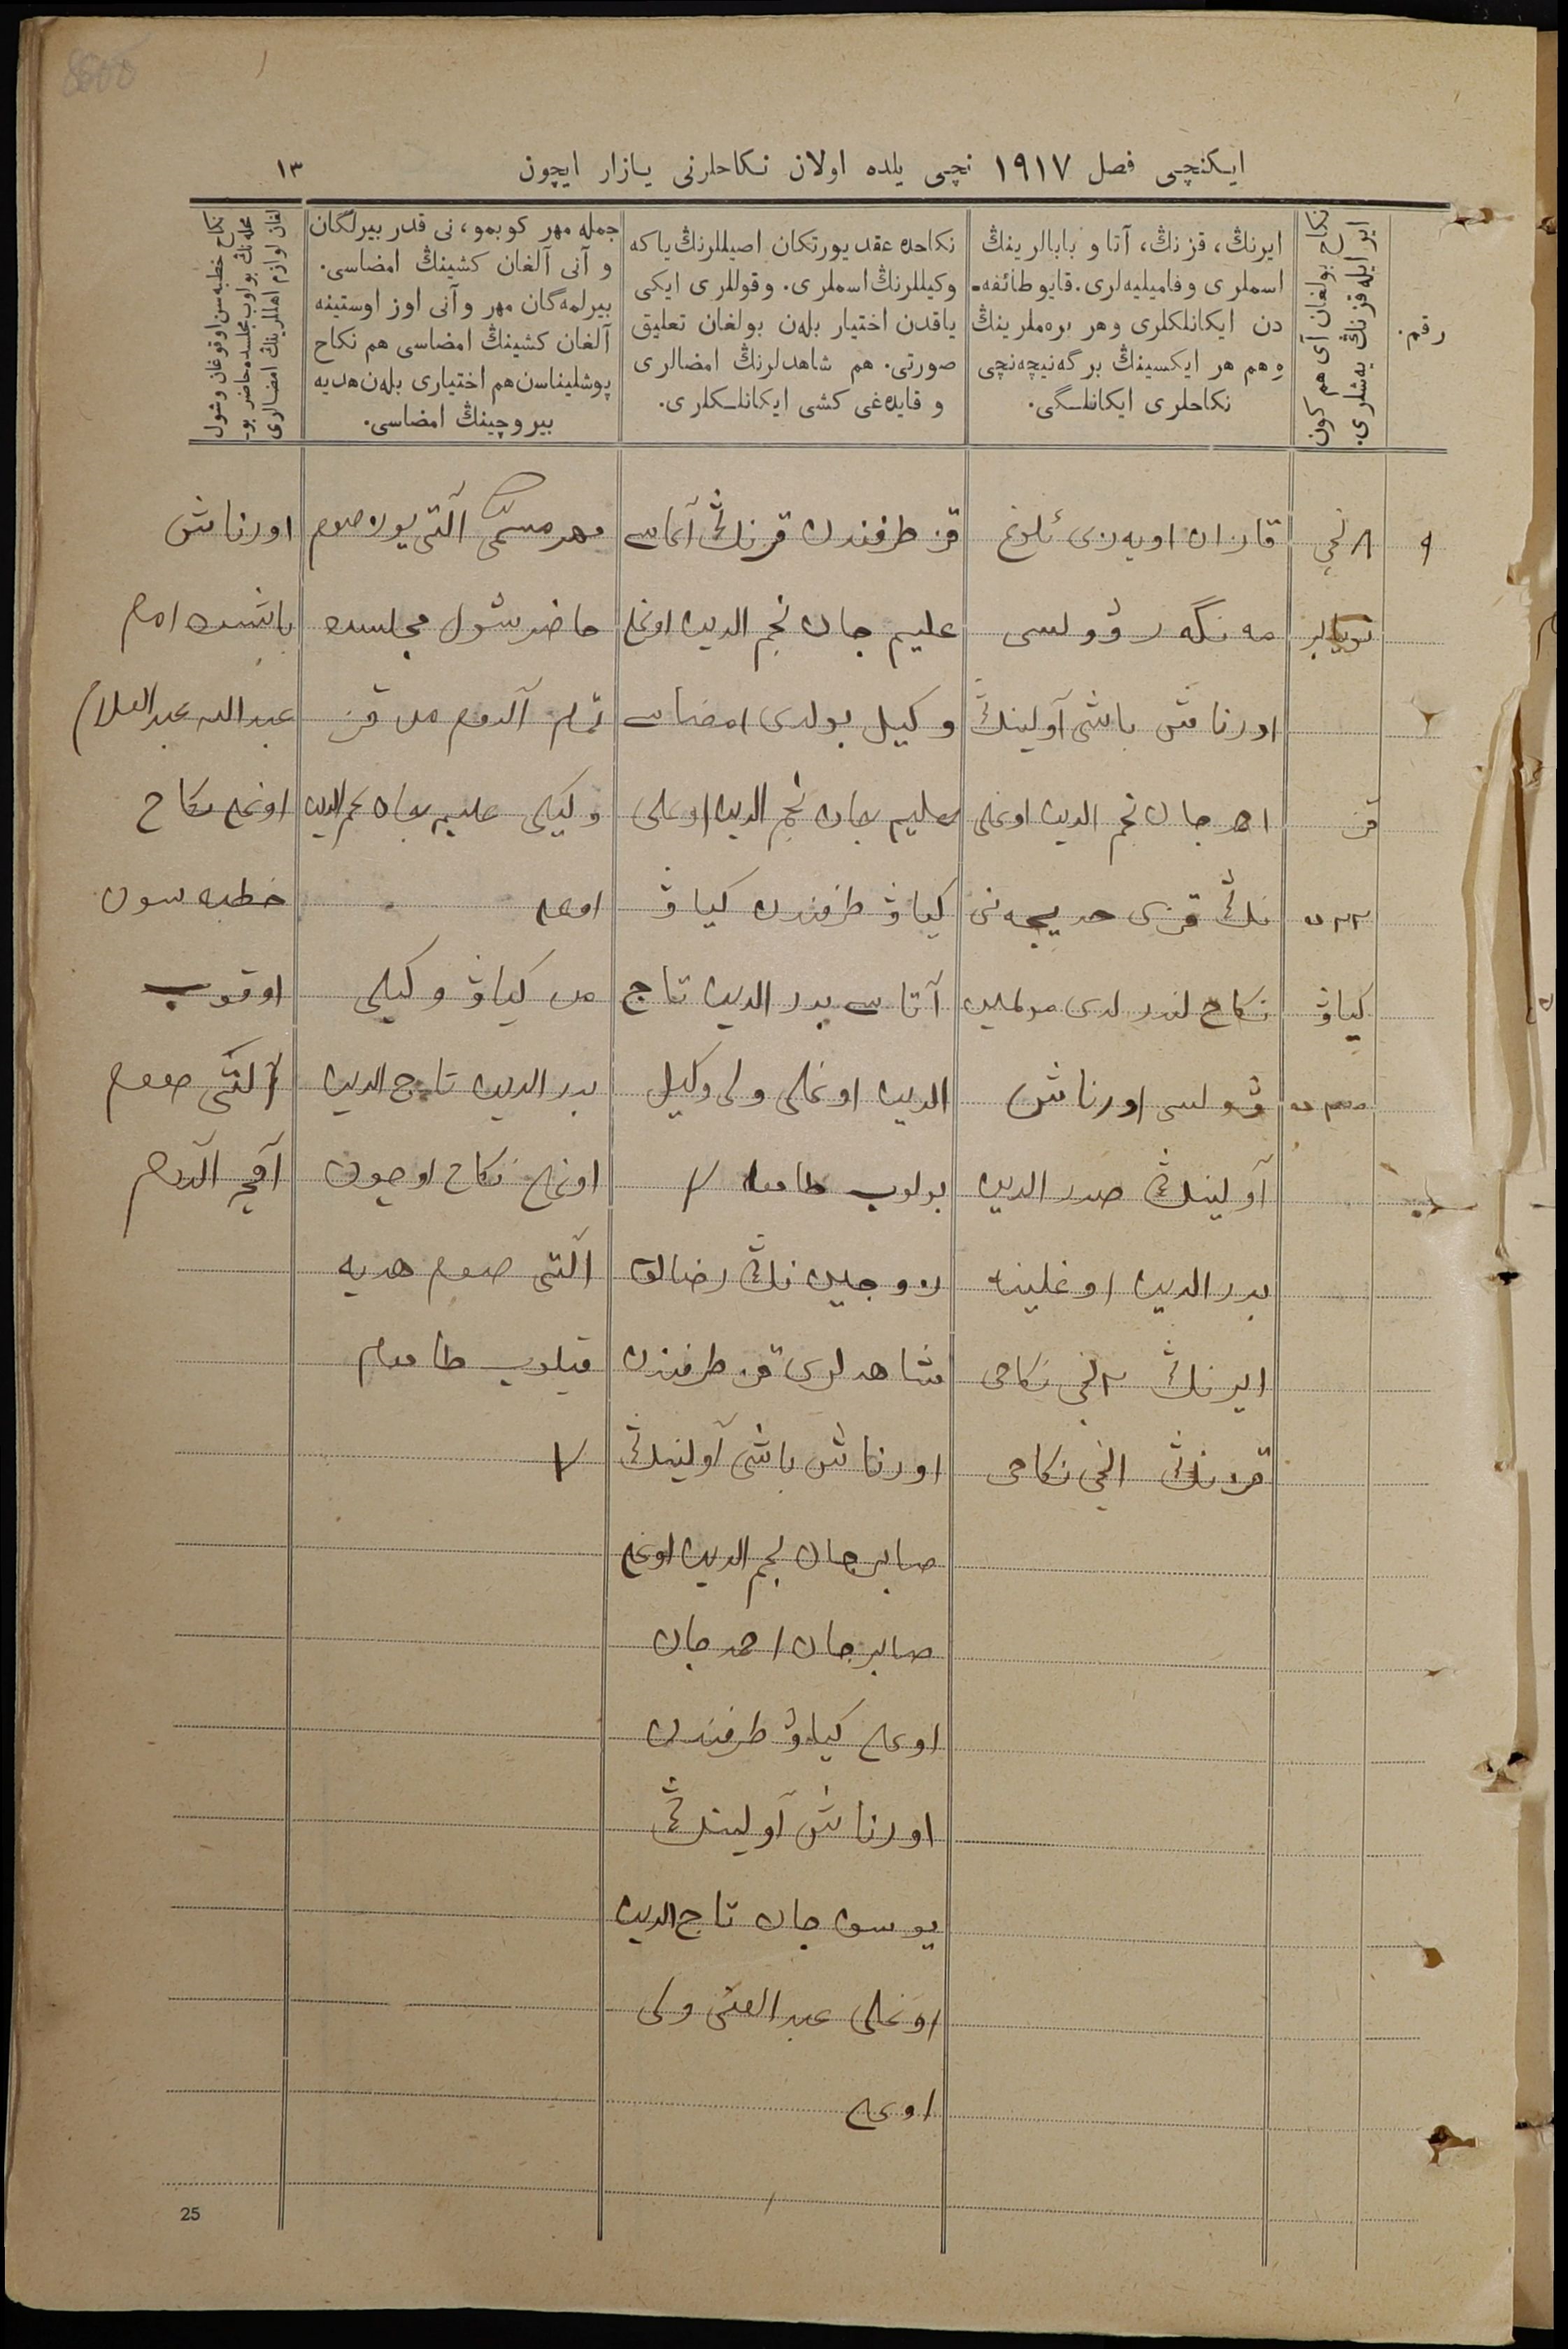 ایکنچی فصل ١٩١٧ نچی یلده اولان نکاحلرنی یازار ایچون
١٣
رقم.
نکاح بولغان آی هم کون
ایر ایله قزنڭ یه‌شلری.
ایرنڭ، قزنڭ، آتا و بابالرینڭ
اسملری و فامیلیه‌لری. قایو طائفه‌
دن ایکانلکلری وهر بره‌ملرینڭ
هم هر ایکسینڭ برگه‌نیچه‌نچی
نکاحلری ایکانلگی.
نکاحده عقد یورتکان اصیللرنڭ یا که
وکیللرنڭ اسملری. و قوللری ایکی
یاقدن اختیار بله‌ن بولغان تعلیق
صورتی. هم شاهدلرنڭ امضالری
و قایده‌غی کشی ایکانلکلری.
جمله مهر کوبمو، نی قدر بیرلگان
و آنی آلغان کشینڭ امضاسی.
بیرلمه‌گان مهر و آنی اوز اوستینه
آلغان کشینڭ امضاسی هم نکاح
پوشلیناسن هم اختیاری بله‌ن هدیه
بیروچینڭ امضاسی.
نکاح خطبه‌سن اوقوغان وشول
محله‌نڭ بولوب مجلسده حاضر بو‌
لغان لوازم اهللرینڭ امضالری
٩
٨ نچی
نویابر
قز
٢٢ ده
کیاو
قازان اویه‌زی ئلوغ
مه نگه ر ۋولسی
اورناش باشی آولینڭ
احمدجان نجم الدین اوغلی
نڭ قزی خدیجه‌نی
نکاح لندرلدی
ۋولسی اورناش
آولینڭ صدر الدین
بدر الدین اوغلینه
ایرنڭ ٢ نچی نکاحی
قزنڭ ١ نچی نکاحی
قز طرفندن قزنڭ آتاسی
علیم جان نجم الدین اوغلی
وکیل بولدی امضاسی
علیم جان نجم الدین اوغلی
کیاۋ طرفندن کیاۋ
آتاسی بدر الدین تاج
الدین اوغلی ولی وکیل
بولوب
زوجین نڭ رضالق
شاهدلری قز طرفندن
اورناش باشی آولینڭ
صابرجان نجم الدین اوغلی
صابرجان احمدجان
اوغلی کیاۋ طرفندن
اورناش آولینڭ
یوسف جان تاج الدین
اوغلی عبد الغنی ولی
اوغلی
مهر مسمّی آلتی یوز صوم
حاضر شول مجلسده
تمام آلدوم من قز
وکیلی علیم جان نجم الدین
اوغلی
من کیاۋ وکیلی
بدر الدین تاج الدین
اوغلی نکاح اوچون
آلتی صوم هدیه
قیلوب
اورناش
باشنده امام
عبد الله عبد العلام
اوغلی نکاح
خطبه سون
اوقوب
آلتی صوم
آقچه آلدوم
25